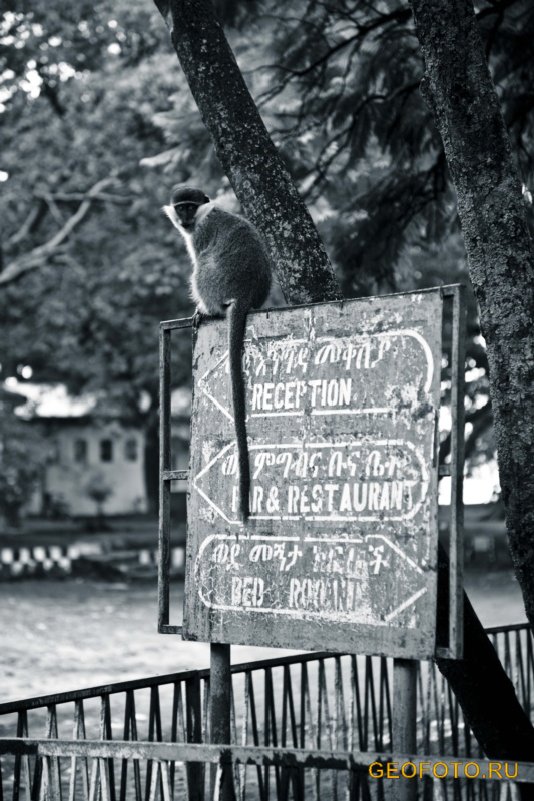 እንግዳ መቀበያ
RECEPTION
ምግብና ቡና ቤት
BAR & RESTAURANT
ወደ መኝታ ክፍሎች
BED ROOM
GEOFOTO.RU